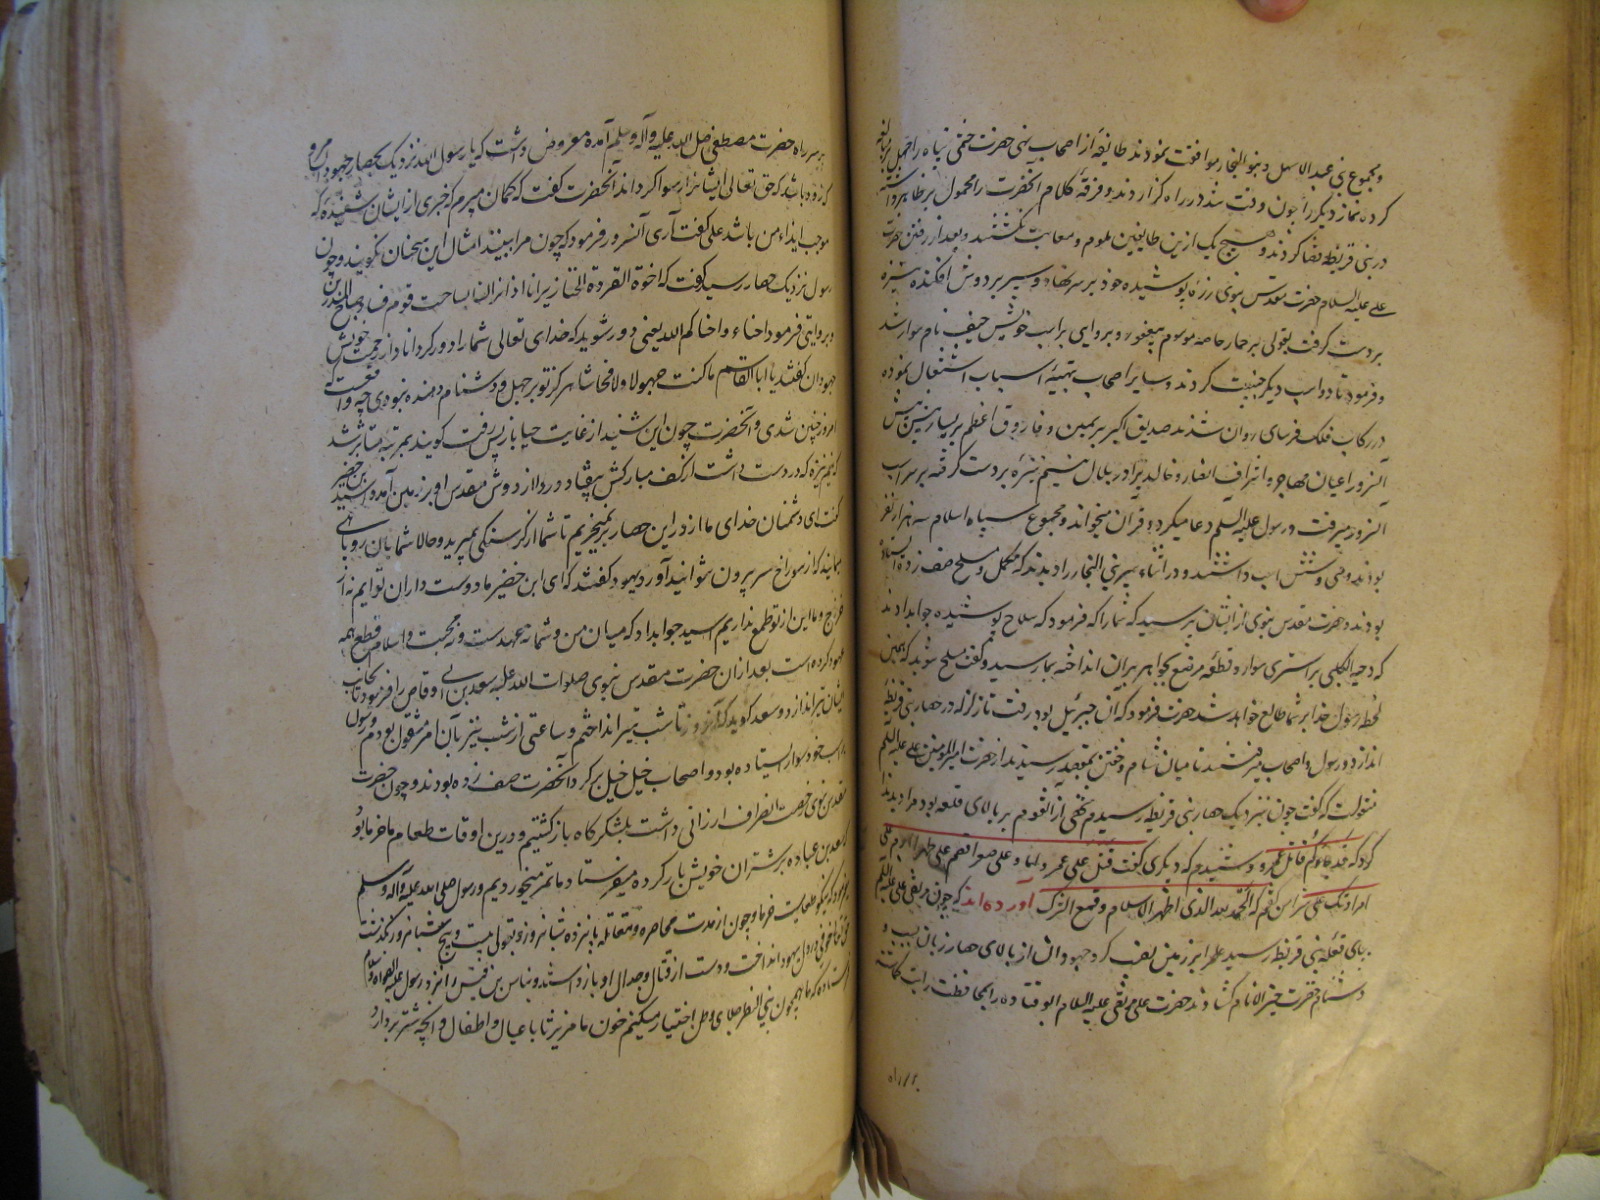 و مجموع بنی عبد الاشهل و بنو النجار موافقت نمودند طایفهٔ از اصحاب نهی حضرت ختمی پناه را حمل
کرده نماز دیگر را چون وقت شد در راه گزاردند و فرقهٔ کلام آنحضرت را محمول بر ظاهر داشته
در بنی قریظه قضا کردند و هیچ یک ازین طایفتین ملوم و معاتب نگشتند و بعد از رفتن حضرت
علی علیه السلام حضرت مقدس نبوی زره پوشیده خود بر سر نهاد و سپر بر دوش افکنده نیزه
بر دست گرفت بقولی بر حمار خاصه موسوم بیعفور و بروایی بر اسب خویش نام سوار شد
و فرمود تا دو اسب دیگر جنیبت کردند و سایر اصحاب بتهیهٔ اسباب اشتغال نموده
در رکاب فلک فرسای روان شدند صدیق اکبر بر یمین و فاروق اعظم بر یسار پیش
آنسرور اعیان مهاجر و اشراف انصار و خالد بر دست گرفته بر سر اسب
آنسرور میرفت و رسول علیه السلم دعا میکرد و قرآن میخواند و مجموع سپاه اسلام سه هزار نفر
بودند و سی و شش اسب داشتند و در اثناء سیر بنی النجار را دیدند که مکمل و مسلح صف زده ایستاده
بودند و حضرت مقدس نبوی از ایشان پرسید که شما را که فرمود که سلاح پوشیده جواب دادند
که دحیه الکلبی بر استری سوار و قطعهٔ مرصع بجواهر بر آن انداخته بما رسید و گفت مسلح شوید که همین
لحظه رسول خدا بر شما طالع خواهد شد حضرت فرمود که آن جبرئیل بود رفت تا زلزله در حصار بنی قریظه
اندازد و رسول و اصحاب میرفتند تا میان شام و خفتن بمقصد رسیدند از حضرت امیر المومنین علی علیه السلم
منقولست که گفت چون بنزدیک حصار بنی قریظه رسیدم شخصی از آنقوم بر بالای قلعه بود مرا دید ندا
کرد که قد جاءکم قاتل عمرو و شنیدم که دیگری گفت قتل علی عمروا و علی صقرا قصم علی ظهرا ابرم علی
امرا هتک علی سترا من گفتم که الحمد لله الذی اظهر الاسلام و قمع الشرک آورده اند که چون مرتضی علی علیه السلم
بپای قلعه بنی قریظه رسید علم را بر زمین نصب کرد جهودان از بالای حصار زبان بسب و
دشنام حضرت خیر الانام گشادند حضرت علی مرتضی علیه السلام ابو قتاده را بمحافظت رایت گماشته
بر سر راه
بر سر راه حضرت مصطفی صلی الله علیه و آله و سلم آمده معروض داشت که یا رسول الله نزدیک بحصار جهودان مرو
که زود باشد که حق تعالی ایشانرا رسوا کرداند آنحضرت گفت که گمان میبرم که خبری از ایشان شنیدهٔ که
موجب ایذاء من باشد علی گفت آری آنسرور فرمود که چون مرا ببینند امثال این سخنان نگویند و چون
رسول نزدیک حصار رسید گفت که اخوة القردة و الخنازیر انا اذا نزلنا بساحت قوم فساء صباح المنذرین
و بروایتی فرمود اخساء و اخساکم الله یعنی دور شوید که خدای تعالی شما را دور کرداناد از رحمت خویش
جهودان گفتند یا ابا القاسم ما کنت جهولا و لا فحاشا هرگز تو بر جهل و دشنام دهنده نبودی چه واقعست که
امروز چنین شدی و آنحضرت چون این شنید از غایت حیا باز پس رفت گویند بمرتبه متاثر شد
که نیم نیزه که در دست داشت از کف مبارکش بیفتاد و ردا از دوش مقدس او بر زمین آمد و اسید بن حضیر
گفت ای دشمنان خدای ما از در این حصار برنمیخیزیم تا شما از گرسنگی بمیرید و حالا شما بآن روباهی
میمانید که از سوراخ سر بیرون نتوانید آورد یهود گفتند که ای ابن حضیر ما دوست داران توایم نه از
خزرج و ما این از تو طمع نداریم اسید جواب داد که میان من و شما نه عهدست و نه محبت و اسلام قطع همه
عهود کرده است بعد ازان حضرت مقدس نبوی صلوات الله علیه سعد بن ابی وقاص را فرمود تا بجانب
ایشان تیر اندازد و سعد گوید که آنروز تا شب تیر انداختم و ساعتی از شب نیز بآن امر مشغول بودم و رسول
بر اسب خود سوار ایستاده بود و اصحاب خیل خیل بر گرد آنحضرت صف زده بودند و چون حضرت
مقدس نبوی رخصت انصراف ارزانی داشت بلشکرگاه بازگشتیم و درین اوقات طعام ما خرما بود
که سعد بن عباده بر شتران خویش بار کرده میفرستاد ما تمر میخوردیم و رسول صلی الله علیه و آله و سلم
میفرمود که نیکو طعامیست خرما و چون از مدت محاصره و مقاتله پانزده شبانروز و بقولی بیست و پنج شبانروز گذشت
حق تعالی خوفی در دل یهود انداخت و دست از قتال و جدال باز داشتند و نباش بن قیس را نزد رسول علیه الصلوة و السلام
فرستادند که ما همچون بنی النضیر جلای وطن اختیار میکنیم خون ما مریز تا با عیال و اطفال و آنچه شتر بردارد